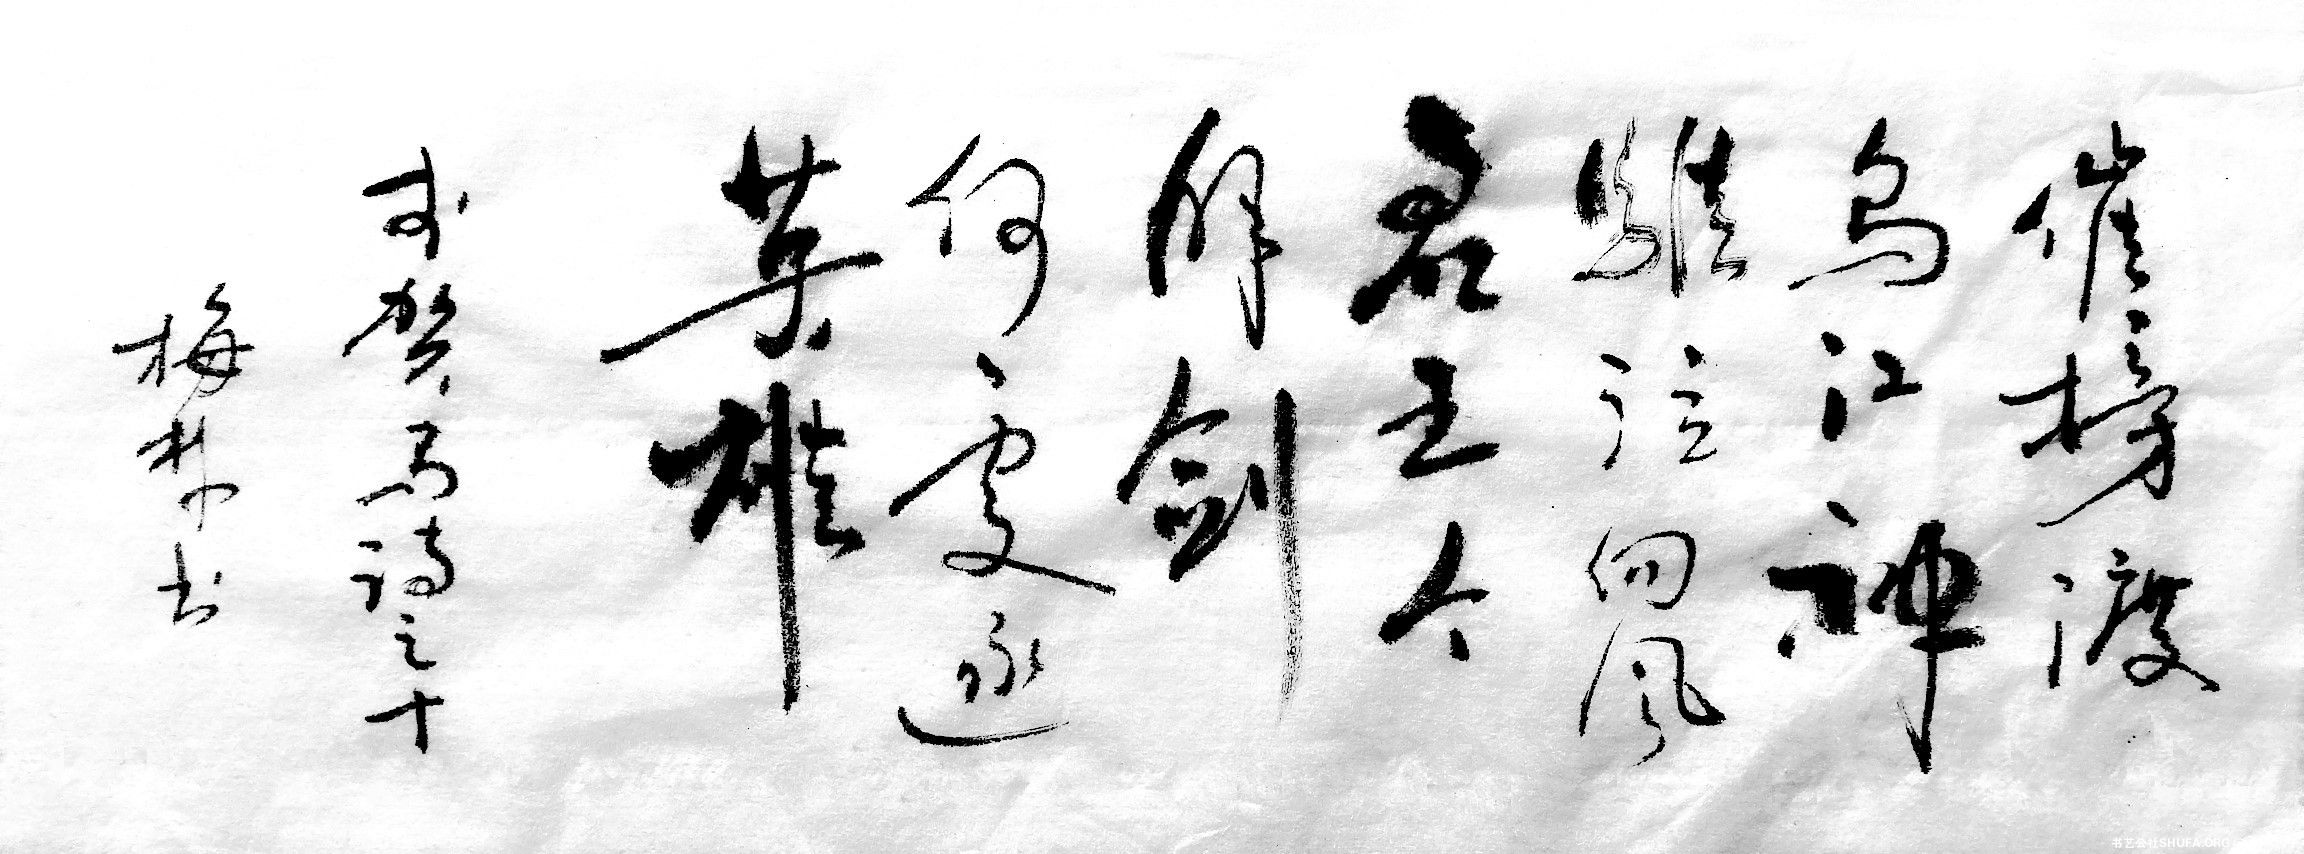 催榜渡
乌江神
騅泣向风
君王今
解剑
何處逐
英雄
李贺马诗之十
梅 书
书艺公社SHUFA.ORG